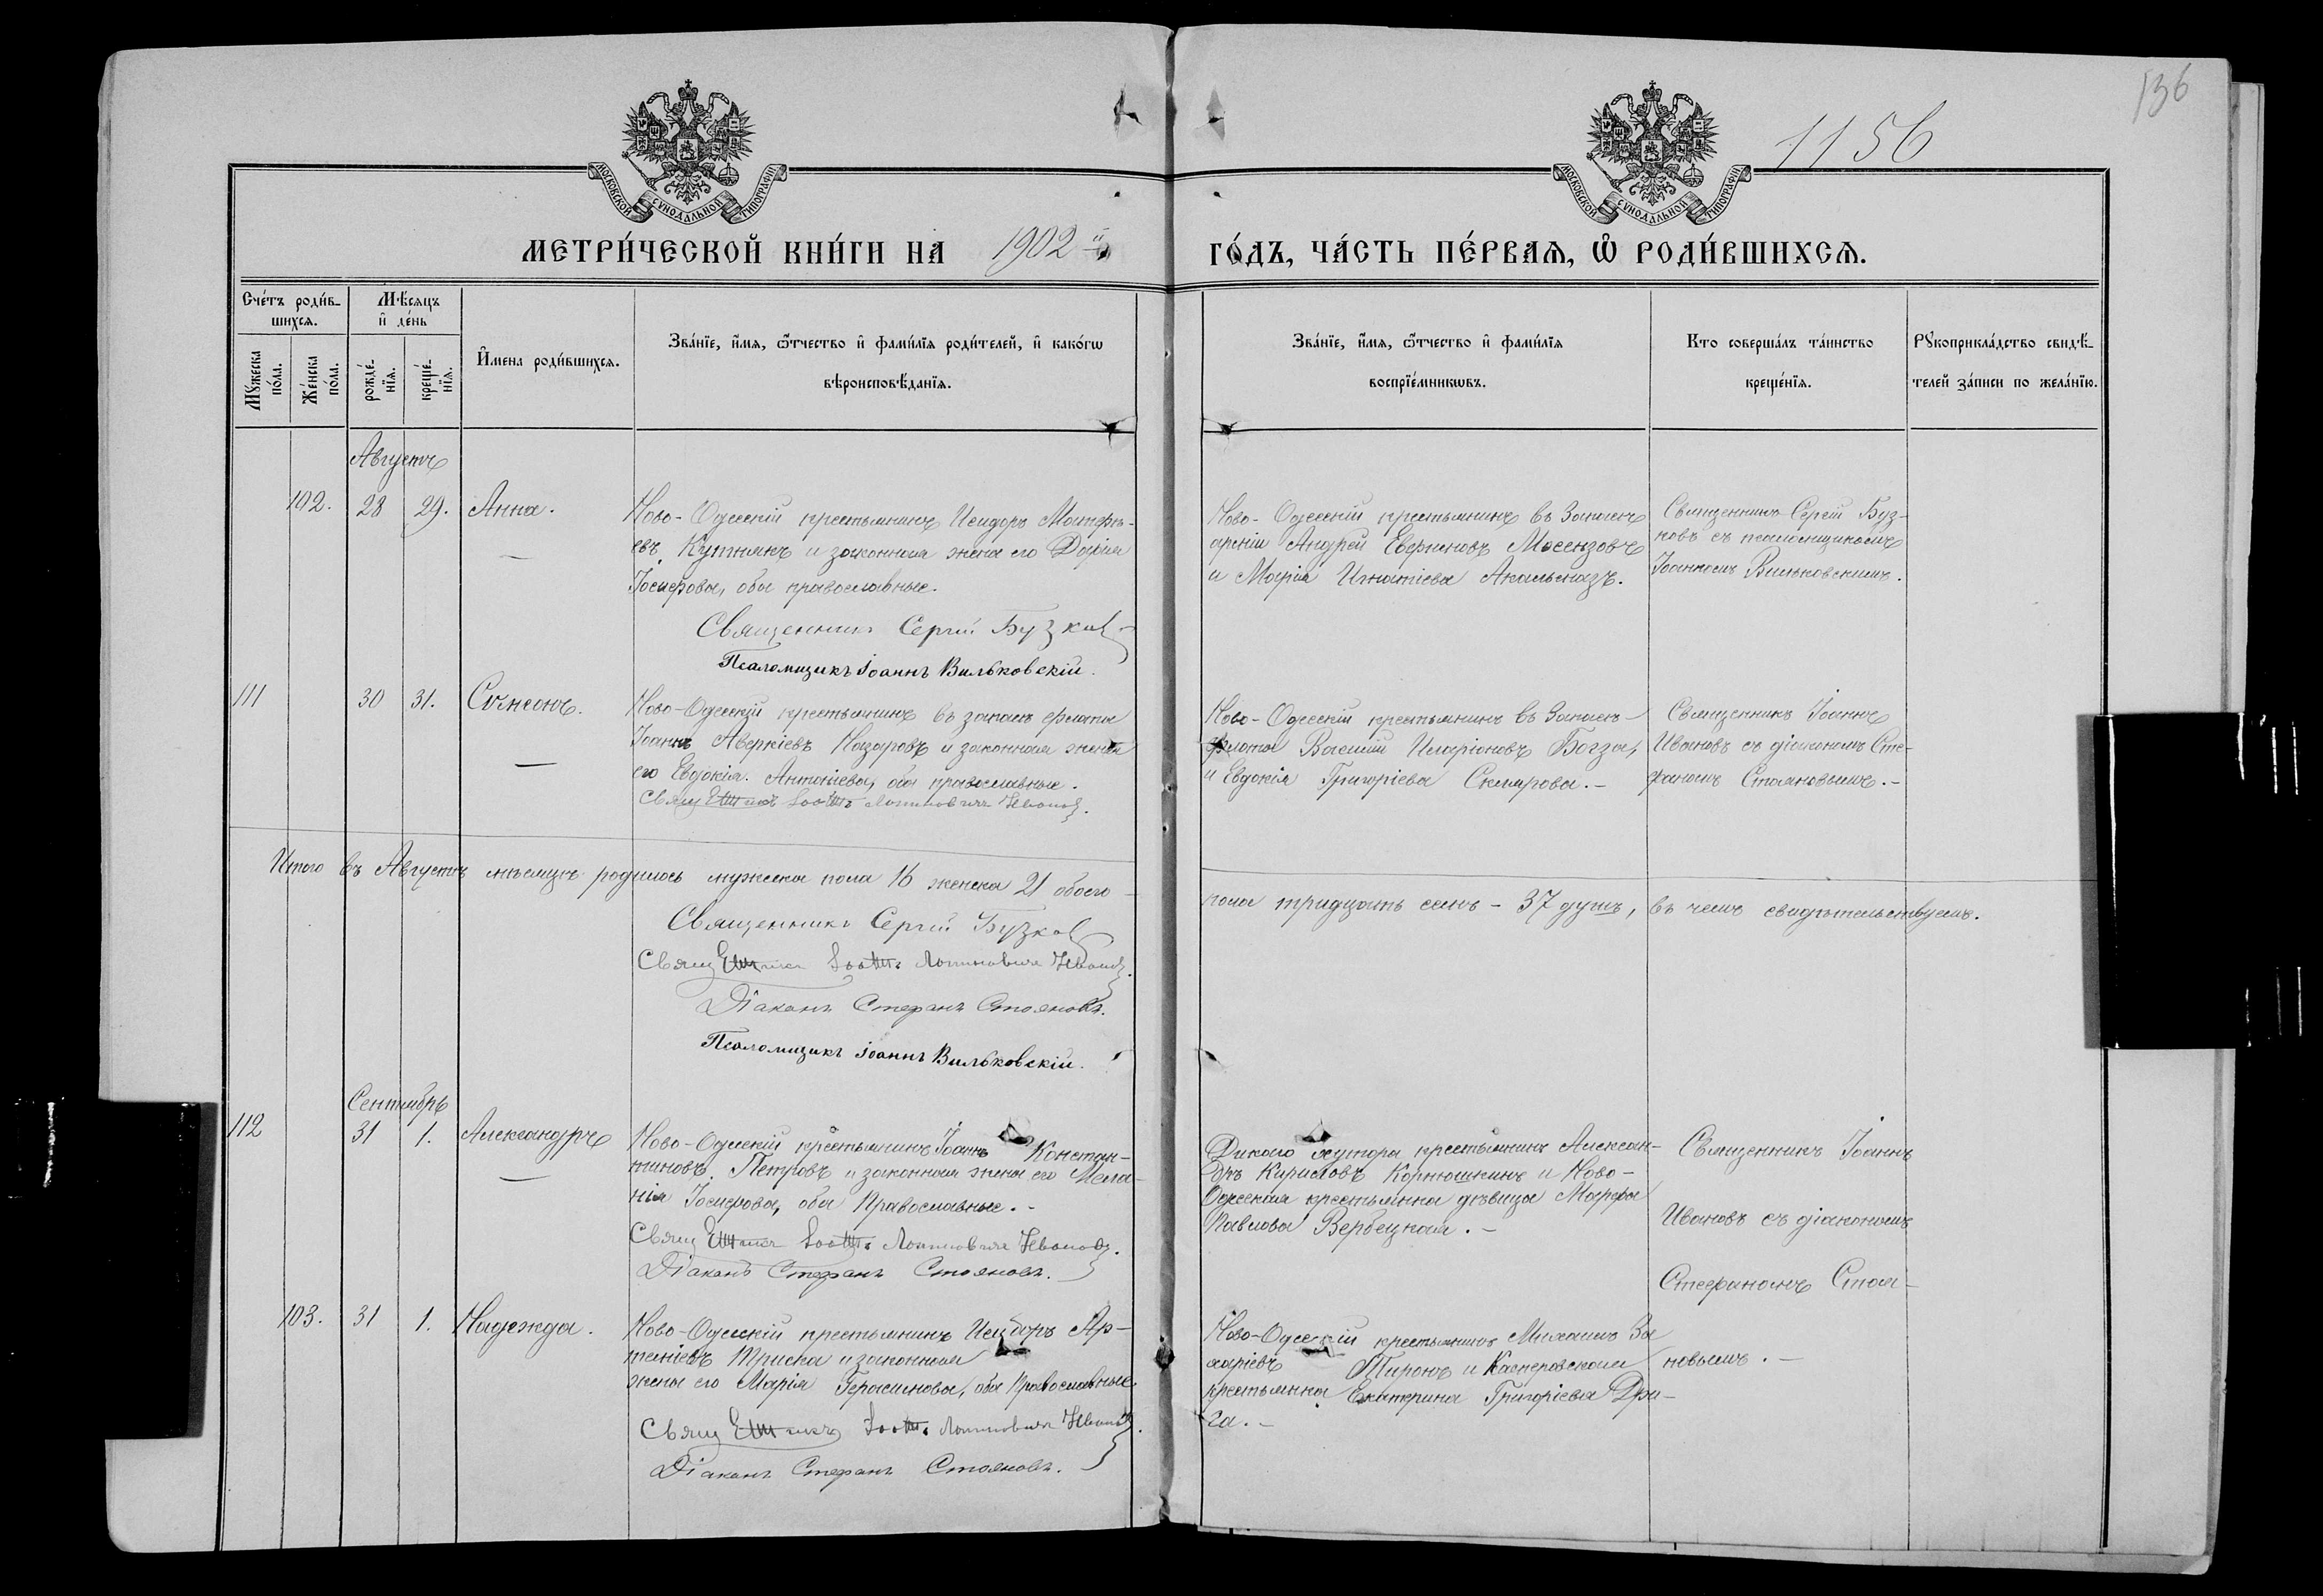 136
1156
МОСКОВСКОЙ СѴНОДАЛЬНОЙ ТИПОГРАФІИ
МОСКОВСКОЙ СѴНОДАЛЬНОЙ ТИПОГРАФІИ
МЕТРИ́ЧЕСКОЙ КНИ́ГИ НА 1902 й ГО́ДЪ, ЧА́СТЬ ПЕ́РВАЯ, Ѽ РОДИ́ВШИХСЯ.
Сче́тъ роди́в-
шихся.
Мꙋжеска по́ла.
Же́нска по́ла.
Мѣ́сяцъ
и҆ де́нь
рожде́-
нїя.
креще́-
нїя.
И҆мена роди́вшихся.
Зва́нїе, и҆́мя, ѻ҆́тчество и҆ фами́лїя роди́телей, и҆ како́гѡ
вѣроисповѣ́данїя.
Зва́нїе, и҆́мя, ѻ҆́тчество и҆ фами́лїя
воспрїе́мникѡвъ.
Кто соверша́лъ та́инство
креще́нїя.
Рꙋкоприкла́дство свидѣ́-
телей за́писи по жела́нїю.
Августъ
102. 28 29. Анна.
Ново-Одесскій крестьянинъ Исидоръ Матѳѣ-
евъ Кутнякъ и законная жена его Дарія
Іосифова, оба православные.
Священникъ Сергій Бузковъ
Псаломщикъ Іоаннъ Вильковскій.
Ново-Одесскій крестьянинъ въ запасѣ
арміи Андрей Мосензовъ
и Марія Игнатіева
Священникъ Сергій Буз-
ковъ съ псаломщикомъ
Іоанномъ Вильковскимъ.
111 30 31. Сѵмеонъ.
Ново-Одесскій крестьянинъ въ запасѣ флота
Іоаннъ Аверкіевъ Назаровъ и законная жена
его Евдокія Антоніева, оба православные.
Свящ Ивановъ.
Ново-Одесскій крестьянинъ въ запасѣ
флота Василій Иларіоновъ Богза,
и Евдокія Григоріева Склярова.-
Священникъ Іоаннъ
Ивановъ съ діакономъ Сте-
фаномъ Стояновымъ.-
Итого въ Августѣ мѣсяцѣ родилось мужеска пола 16 женска 21 обоего
пола тридцать семь - 37 душъ, въ чемъ свидѣтельствуемъ.
Священникъ Сергій Бузковъ
Свящ Ивановъ.
Діаконъ Стефанъ Стояновъ.
Псаломщикъ Іоаннъ Вильковскій.
Сентябрь
112 31 1. Александръ
Ново-Одесскій крестьянинъ Іоаннъ Констан-
тиновъ Петровъ и законная жена его Мела-
нія Іосифова, оба Православные.-
Свящ Ивановъ.
Діаконъ Стефанъ Стояновъ.
Дикаго Хутора крестьянинъ Алексан-
дръ Кириловъ Корнюшкинъ и Ново-
Одесская крестьянка дѣвица Марфа
Павлова Вербецкая.-
Священникъ Іоаннъ
Ивановъ съ діакономъ
Стефаномъ Стоя-
новымъ.-
103. 31 1. Надежда.
Ново-Одесскій крестьянинъ Исидоръ Ар-
теміевъ Триска и законная
жена его Марія Герасимова, оба Православные.
Свящ Ивановъ.
Діаконъ Стефанъ Стояновъ.
Ново-Одесскій крестьянинъ Михаилъ За
харіевъ Тиронъ и Касперовская
крестьянка Екатерина Григоріева Дри-
га.-